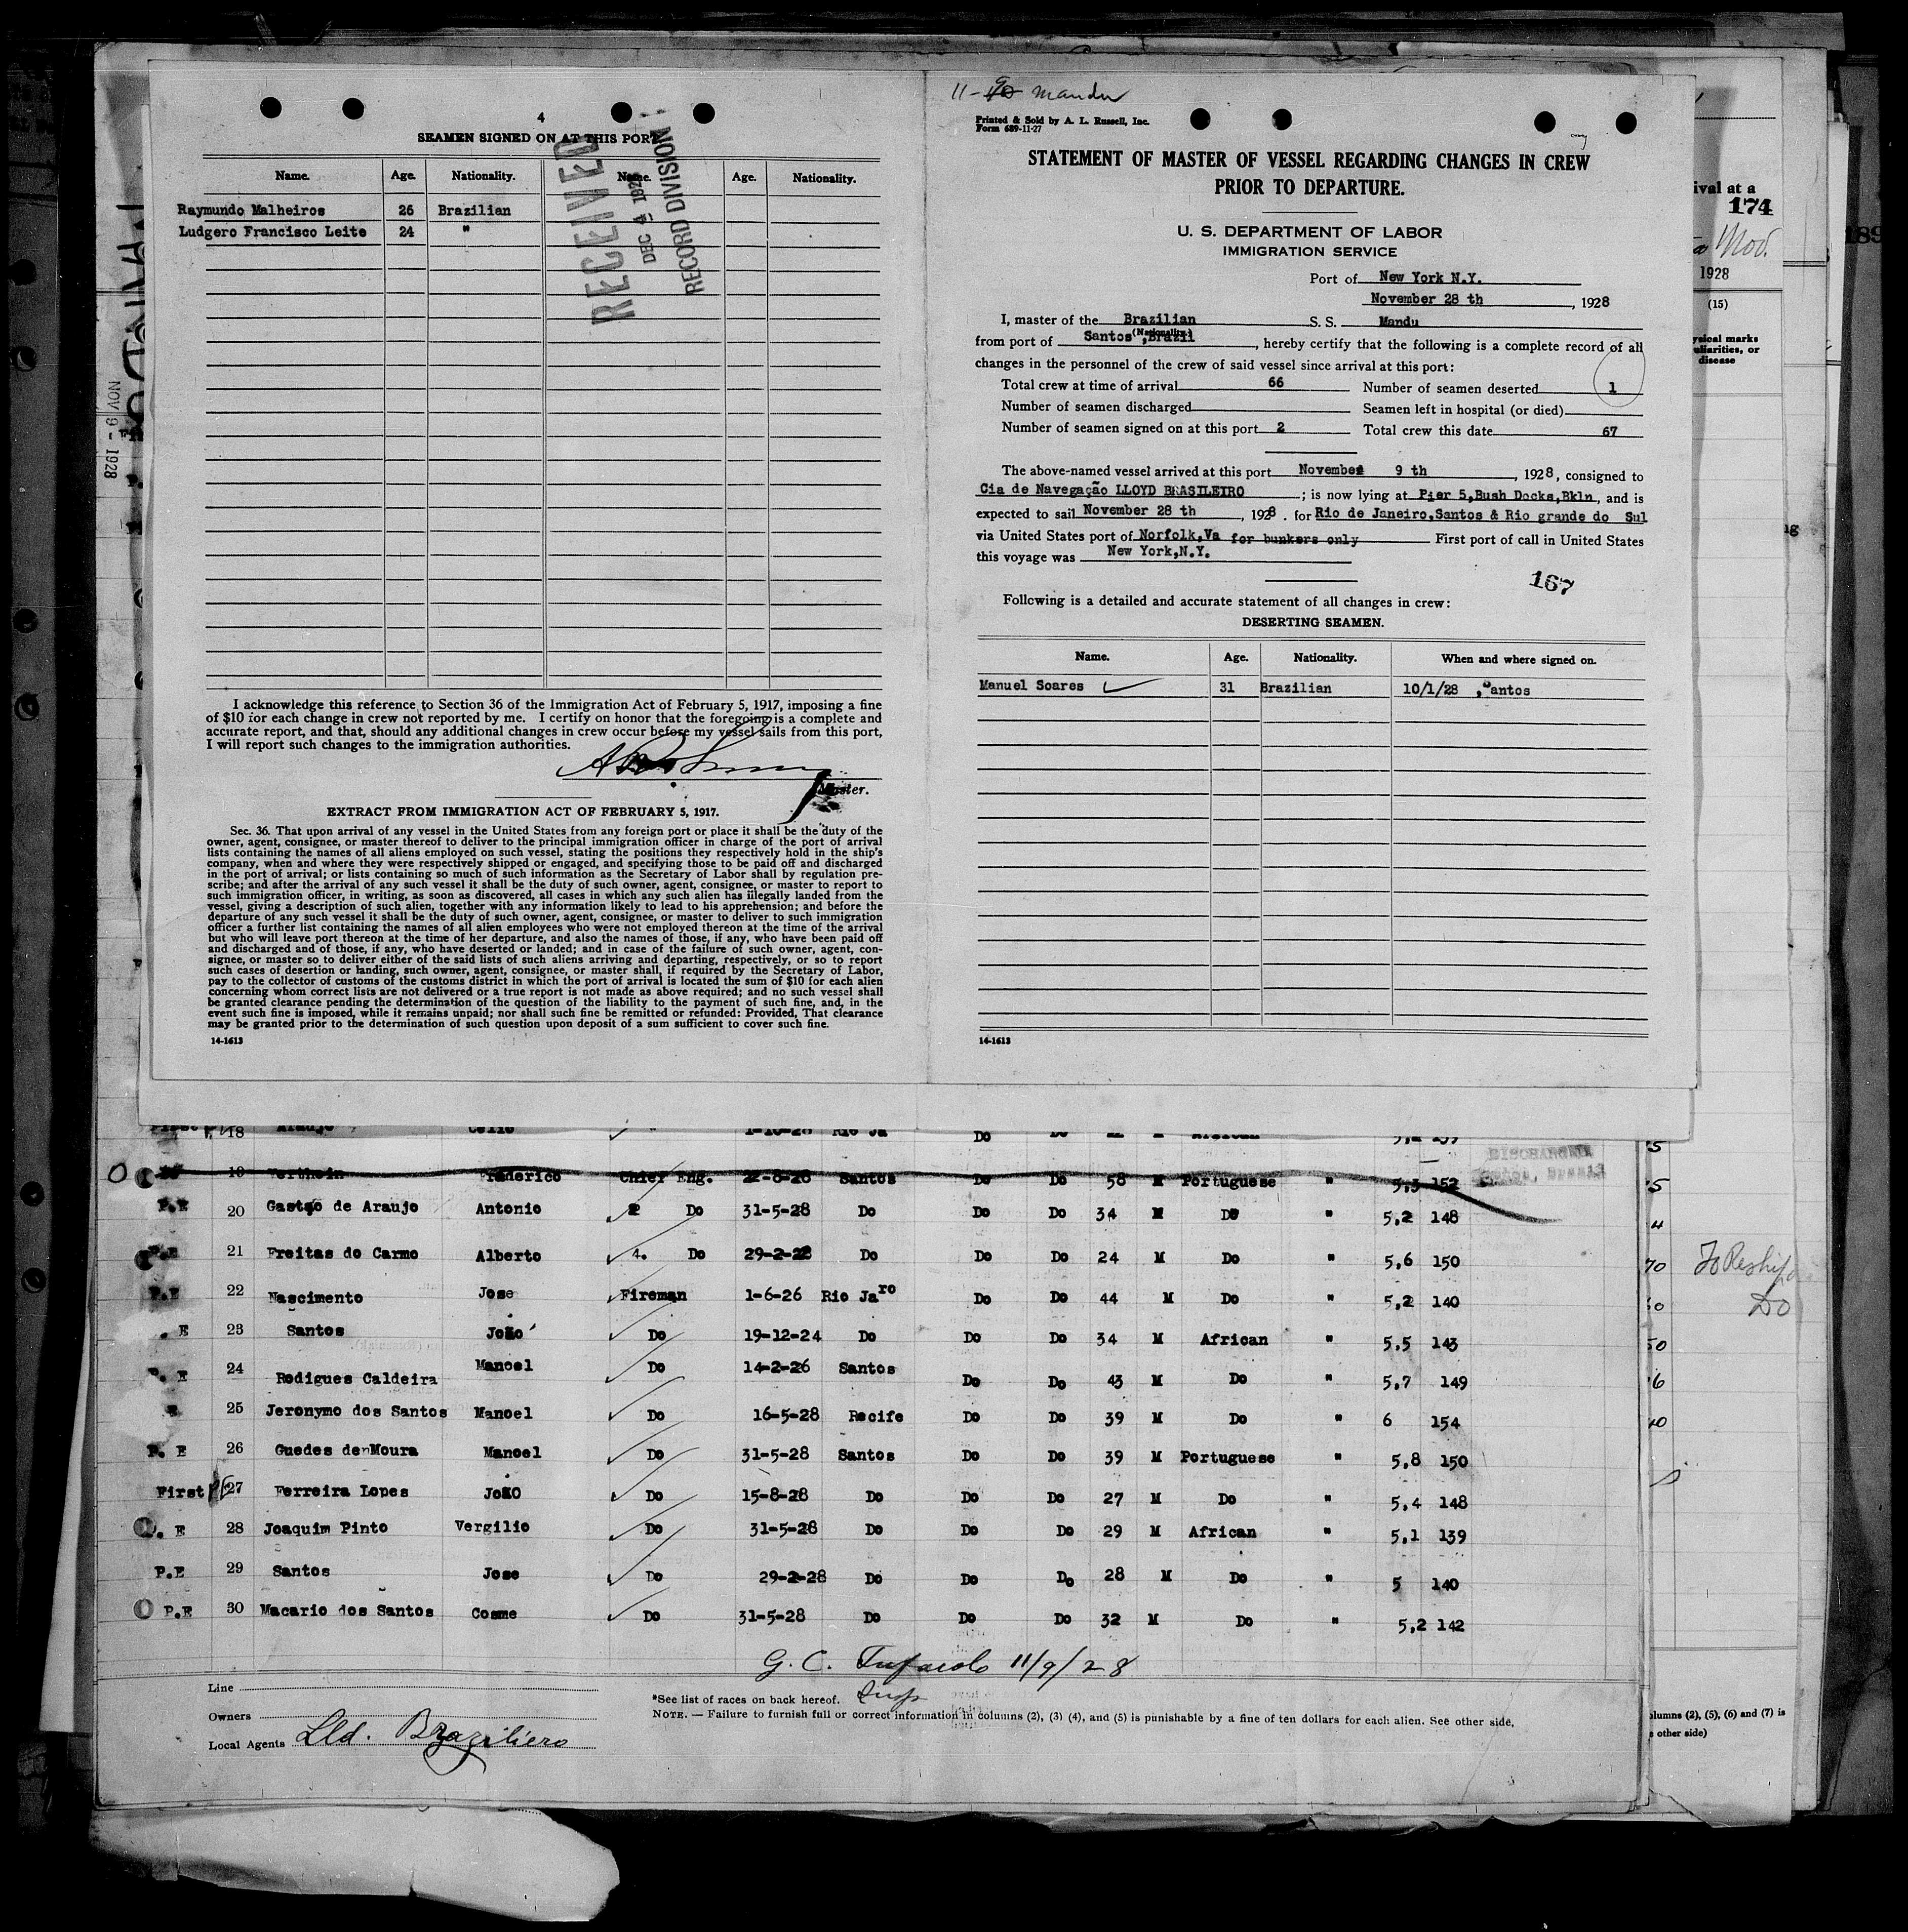 4
SEAMEN SIGNED ON AT THIS PORT
Name. Age. Nationality. Name. Age. Nationality.
Raymundo Malheiros 26 Brazilian
Ludgero Francisco Leite 24 "
RECEIVED
DEC 4 1928
RECORD DIVISION
I acknowledge this reference to Section 36 of the Immigration Act of February 5, 1917, imposing a fine
of $10 for each change in crew not reported by me. I certify on honor that the foregoing is a complete and
accurate report, and that, should any additional changes in crew occur before my vessel sails from this port,
I will report such changes to the immigration authorities.
Master.
EXTRACT FROM IMMIGRATION ACT OF FEBRUARY 5, 1917.
Sec. 36. That upon arrival of any vessel in the United States from any foreign port or place it shall be the duty of the
owner, agent, consignee, or master thereof to deliver to the principal immigration officer in charge of the port of arrival
lists containing the names of all aliens employed on such vessel, stating the positions they respectively hold in the ship's
company, when and where they were respectively shipped or engaged, and specifying those to be paid off and discharged
in the port of arrival; or lists containing so much of such information as the Secretary of Labor shall by regulation pre-
scribe; and after the arrival of any such vessel it shall be the duty of such owner, agent, consignee, or master to report to
such immigration officer, in writing, as soon as discovered, all cases in which any such alien has illegally landed from the
vessel, giving a description of such alien, together with any information likely to lead to his apprehension; and before the
departure of any such vessel it shall be the duty of such owner, agent, consignee, or master to deliver to such immigration
officer a further list containing the names of all alien employees who were not employed thereon at the time of the arrival
but who will leave port thereon at the time of her departure, and also the names of those, if any, who have been paid off
and discharged and of those, if any, who have deserted or landed; and in case of the failure of such owner, agent, con-
signee, or master so to deliver either of the said lists of such aliens arriving and departing, respectively, or so to report
such cases of desertion or landing, such owner, agent, consignee, or master shall, if required by the Secretary of Labor,
pay to the collector of customs of the customs district in which the port of arrival is located the sum of $10 for each alien
concerning whom correct lists are not delivered or a true report is not made as above required; and no such vessel shall
be granted clearance pending the determination of the question of the liability to the payment of such fine, and, in the
event such fine is imposed, while it remains unpaid; nor shall such fine be remitted or refunded: Provided, That clearance
may be granted prior to the determination of such question upon deposit of a sum sufficient to cover such fine.
14-1613
Printed & Sold by A. L. Russell, Inc.
Form 689-11-27
STATEMENT OF MASTER OF VESSEL REGARDING CHANGES IN CREW
PRIOR TO DEPARTURE.
U. S. DEPARTMENT OF LABOR
IMMIGRATION SERVICE
Port of New York N.Y.
November 28 th, 1928
I, master of the Brazilian S. S. Mandu
(Nationality.)
from port of Santos, Brazil, hereby certify that the following is a complete record of all
changes in the personnel of the crew of said vessel since arrival at this port:
Total crew at time of arrival 66 Number of seamen deserted 1
Number of seamen discharged Seamen left in hospital (or died)
Number of seamen signed on at this port 2 Total crew this date 67
The above-named vessel arrived at this port November 9 th, 1928, consigned to
Cia de Navegação LLOYD BRASILEIRO; is now lying at Pier 5,Bush Docks,Bkln, and is
expected to sail November 28 th, 1928. for Rio de Janeiro,Santos & Rio grande do Sul
via United States port of Norfolk,Va for bunkers only First port of call in United States
this voyage was New York,N.Y.
167
Following is a detailed and accurate statement of all changes in crew:
DESERTING SEAMEN.
Name. Age. Nationality. When and where signed on.
Manuel Soares 31 Brazilian 10/1/28 ,Santos
14-1613
ival at a
174
Nov.
1928
(15)
ysical marks
uliarities, or
disease
NOV 9 - 1928
18 Araujo 1-10-28 Rio Ja Do
DISCHARGED
Santos, Brazil
19 Werthein Frederico Chief Eng. 22-8-28 Santos Do Do 58 M Portuguese " 5,3 152
P.E 20 Gastão de Araujo Antonio 2 Do 31-5-28 Do Do Do 34 M Do " 5,2 148
P.E 21 Freitas do Carmo Alberto 4. Do 29-2-28 Do Do Do 24 M Do " 5,6 150
P.E 22 Nascimento Jose Fireman 1-6-26 Rio Jaro Do Do 44 M Do " 5,2 140
. E 23 Santos João Do 19-12-24 Do Do Do 34 M African " 5.5 143
P. E 24 Rodigues Caldeira Manoel Do 14-2-26 Santos Do Do 43 M Do " 5,7 149
E 25 Jeronymo dos Santos Manoel Do 16-5-28 Recife Do Do 39 M Do " 6 154
P. E 26 Guedes de Moura Manoel Do 31-5-28 Santos Do Do 39 M Portuguese " 5,8 150
First 27 Ferreira Lopes João Do 15-8-28 Do Do Do 27 M Do " 5,4 148
. E 28 Joaquim Pinto Vergilio Do 31-5-28 Do Do Do 29 M African " 5,1 139
P.E 29 Santos Jose Do 29-2-28 Do Do Do 28 M Do " 5 140
P.E 30 Macario dos Santos Cosme Do 31-5-28 Do Do Do 32 M Do " 5,2 142
To Reship
Do
G. C. 11/9/28
Insp
Line
Owners
Local Agents Lld. Braziliero
*See list of races on back hereof.
NOTE. — Failure to furnish full or correct information in columns (2), (3) (4), and (5) is punishable by a fine of ten dollars for each alien. See other side,
olumns (2), (5), (6) and (7) is
other side)